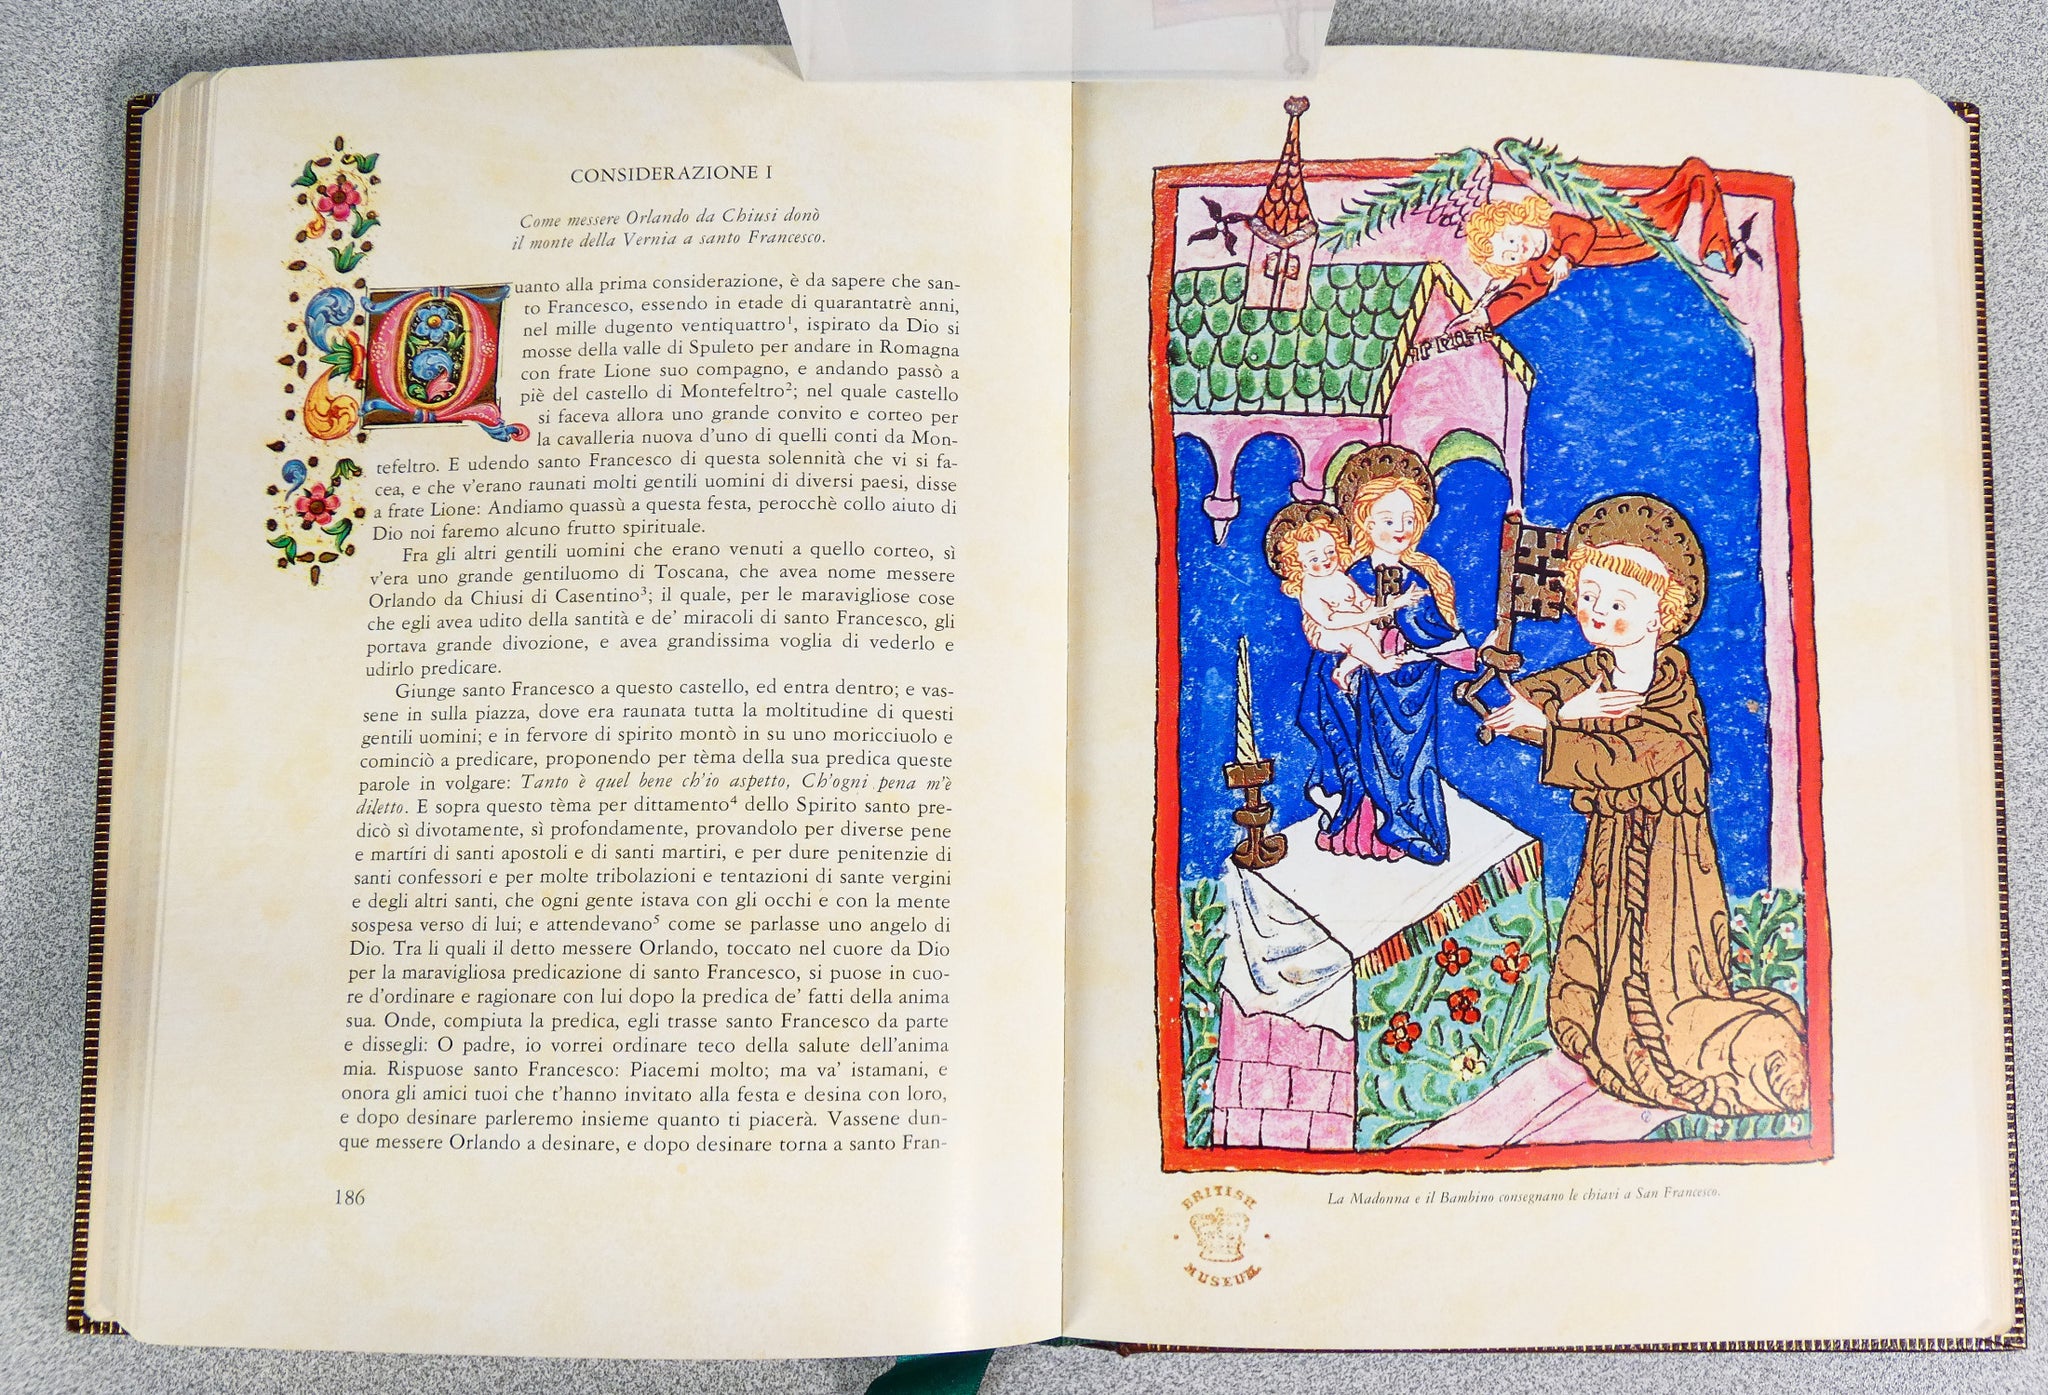 CONSIDERAZIONE I
Come messere Orlando da Chiusi donò
il monte della Vernia a santo Francesco.
Quanto alla prima considerazione, è da sapere che san-
to Francesco, essendo in etade di quarantatrè anni,
nel mille dugento ventiquattro¹, ispirato da Dio si
mosse della valle di Spuleto per andare in Romagna
con frate Lione suo compagno, e andando passò a
piè del castello di Montefeltro²; nel quale castello
si faceva allora uno grande convito e corteo per
la cavalleria nuova d'uno di quelli conti da Mon-
tefeltro. E udendo santo Francesco di questa solennità che vi si fa-
cea, e che v'erano raunati molti gentili uomini di diversi paesi, disse
a frate Lione: Andiamo quassù a questa festa, perocchè collo aiuto di
Dio noi faremo alcuno frutto spirituale.
Fra gli altri gentili uomini che erano venuti a quello corteo, sì
v'era uno grande gentiluomo di Toscana, che avea nome messere
Orlando da Chiusi di Casentino³; il quale, per le maravigliose cose
che egli avea udito della santità e de' miracoli di santo Francesco, gli
portava grande divozione, e avea grandissima voglia di vederlo e
udirlo predicare.
Giunge santo Francesco a questo castello, ed entra dentro; e vas-
sene in sulla piazza, dove era raunata tutta la moltitudine di questi
gentili uomini; e in fervore di spirito montò in su uno moricciuolo e
cominciò a predicare, proponendo per tèma della sua predica queste
parole in volgare: Tanto è quel bene ch'io aspetto, Ch'ogni pena m'è
diletto. E sopra questo tèma per dittamento⁴ dello Spirito santo pre-
dicò sì divotamente, sì profondamente, provandolo per diverse pene
e martíri di santi apostoli e di santi martiri, e per dure penitenzie di
santi confessori e per molte tribolazioni e tentazioni di sante vergini
e degli altri santi, che ogni gente istava con gli occhi e con la mente
sospesa verso di lui; e attendevano⁵ come se parlasse uno angelo di
Dio. Tra li quali il detto messere Orlando, toccato nel cuore da Dio
per la maravigliosa predicazione di santo Francesco, si puose in cuo-
re d'ordinare e ragionare con lui dopo la predica de' fatti della anima
sua. Onde, compiuta la predica, egli trasse santo Francesco da parte
e dissegli: O padre, io vorrei ordinare teco della salute dell'anima
mia. Rispuose santo Francesco: Piacemi molto; ma va' istamani, e
onora gli amici tuoi che t'hanno invitato alla festa e desina con loro,
e dopo desinare parleremo insieme quanto ti piacerà. Vassene dun-
que messere Orlando a desinare, e dopo desinare torna a santo Fran-
186
La Madonna e il Bambino consegnano le chiavi a San Francesco.
BRITISH
MUSEUM